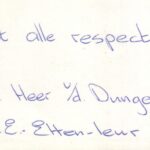 t alle respect
Heer v/d. Dunge
.E. Etten-leur